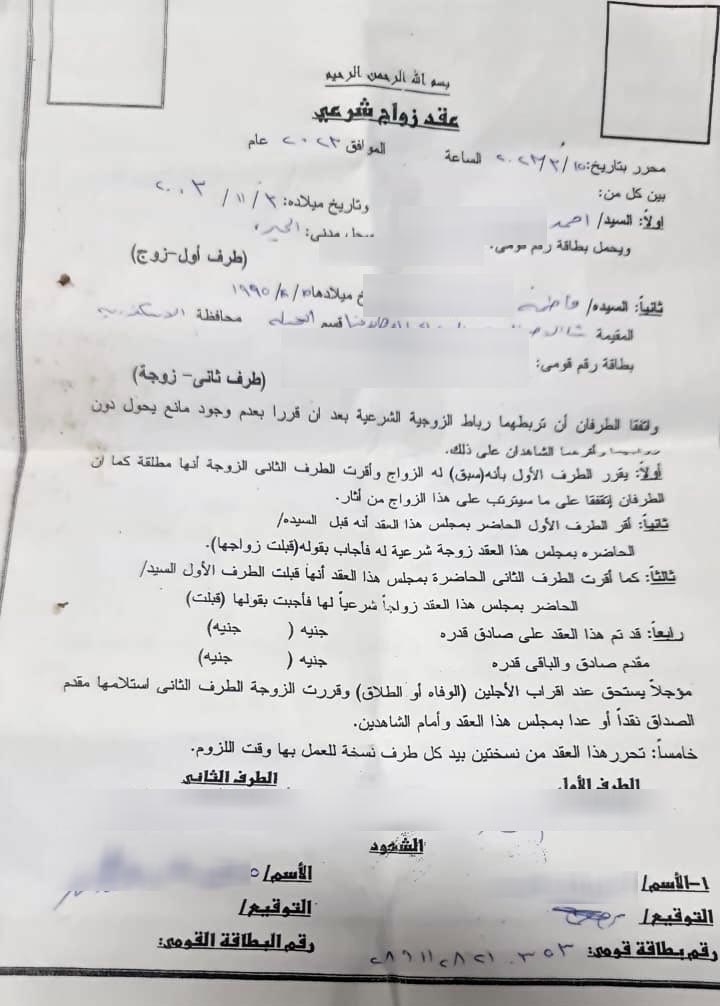 بسم الله الرحمن الرحيم
عقد زواج شرعي
محرر بتاريخ: ١٥/٣/٢٠٢٣ الساعة الموافق ٢٠٢٣ عام
بين كل من:
اولاً: السيد/ احمد وتاريخ ميلاده: ٣/١١/٢٠٠٣
ويحمل بطاقة رقم قومى. سجل مدنى:
(طرف أول-زوج)
ثانياً: السيده/ فاطمة ميلادها ١٩٩٥
المقيمة قسم محافظة الاسكندريه
بطاقة رقم قومى:
(طرف ثانى- زوجة)
واتفقا الطرفان أن تربطهما رباط الزوجية الشرعية بعد ان قررا بعدم وجود مانع يحول دون
الشاهدان على ذلك.
أولاً: يقرر الطرف الأول بأنه(سبق) له الزواج وأقرت الطرف الثانى الزوجة أنها مطلقة كما ان
الطرفان إتفقفا على ما سيترتب على هذا الزواج من أثار.
ثانياً: أقر الطرف الأول الحاضر بمجلس هذا العقد أنه قبل السيده/
الحاضره بمجلس هذا العقد زوجة شرعية له فأجاب بقوله(قبلت زواجها).
ثالثاً: كما أقرت الطرف الثانى الحاضرة بمجلس هذا العقد أنها قبلت الطرف الأول السيد/
الحاضر بمجلس هذا العقد زواجاً شرعياً لها فأجبت بقولها (قبلت)
رابعاً: قد تم هذا العقد على صادق قدره جنيه ( جنيه)
مقدم صادق والباقى قدره جنيه ( جنيه)
مؤجلاً يستحق عند اقراب الأجلين (الوفاه أو الطلاق) وقررت الزوجة الطرف الثانى استلامها مقدم
الصداق نقداً أو عدا بمجلس هذا العقد وأمام الشاهدين.
خامساً: تحرر هذا العقد من نسختين بيد كل طرف نسخة للعمل بها وقت اللزوم.
الطرف الأول الطرف الثانى
الشهود
١-الأسم/ الأسم/
التوقيع/ التوقيع/
رقم بطاقة قومى: رقم البطاقة القومى: